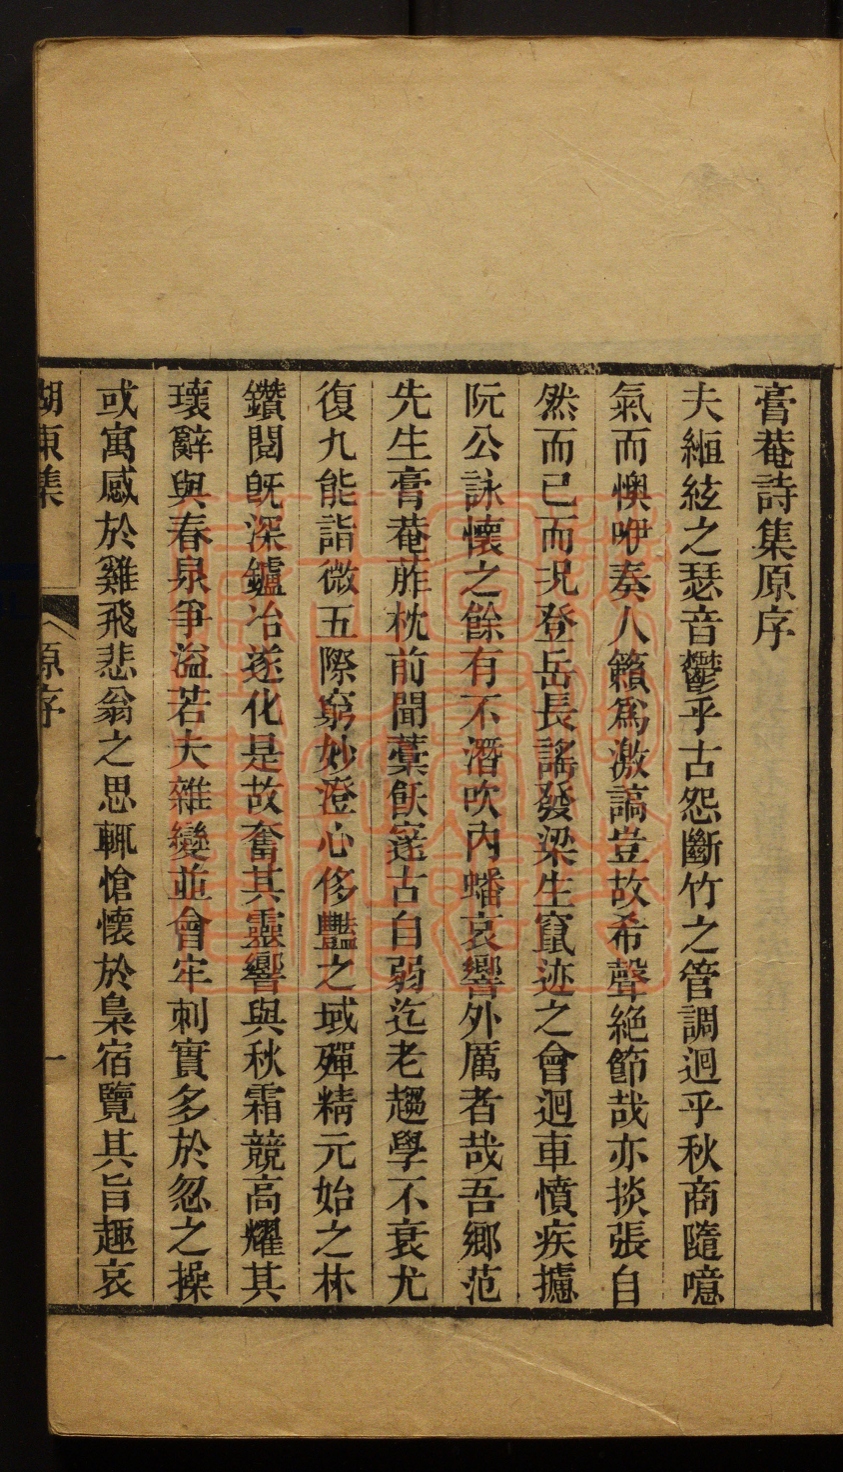 膏菴詩集原序
夫絚絃之瑟音鬱乎古怨斷竹之管調迥乎秋商隨噫
氣而懊咿奏人籟爲激謞豈故希聲絶節哉亦掞張自
然而已而况登岳長謠發梁生竄迹之會迴車憤疾攄
阮公詠懷之餘有不潛吹內蟠哀響外厲者哉吾鄉范
先生膏菴葄枕前聞藁飫窔古自弱迄老趨學不衰尤
復九能詣微五際窮妙澄心侈豔之域殫精元始之林
鑽閱旣深鑪冶遂化是故奮其靈響與秋霜競高耀其
瓌辭與春泉爭溢若夫雜變並會牢刺實多於忽之操
或寓感於雞飛悲翁之思輒愴懷於梟宿覽其旨趣哀
湖東集 原序 一